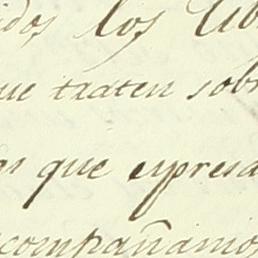 idos los lib
ue traten sobr
as que espresa
compañamos